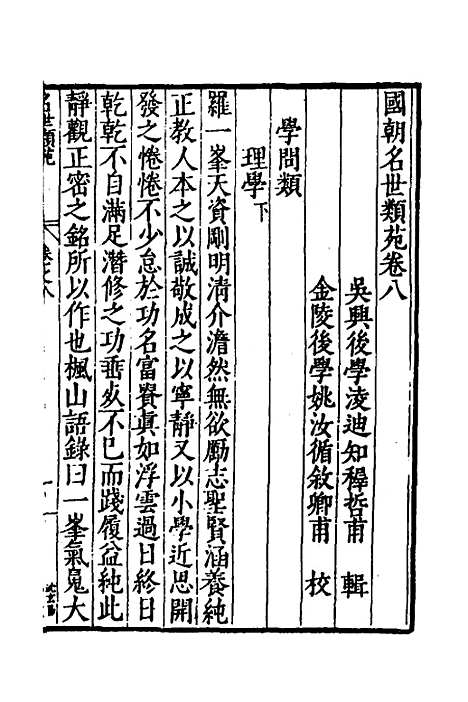 國朝名世類苑卷八
吳興後學淩迪知穉哲甫 輯
金陵後學姚汝循敘卿甫 校
學問類
理學下
羅一峯天資剛明清介澹然無欲勵志聖賢涵養純
正教人本之以誠敬成之以寧靜又以小學近思開
發之惓惓不少怠於功名富貴真如浮雲過日終日
乾乾不自滿足潛修之功垂死不已而踐履益純此
靜觀正密之銘所以作也楓山語錄曰一峯氣魄大
名世類苑 卷之八